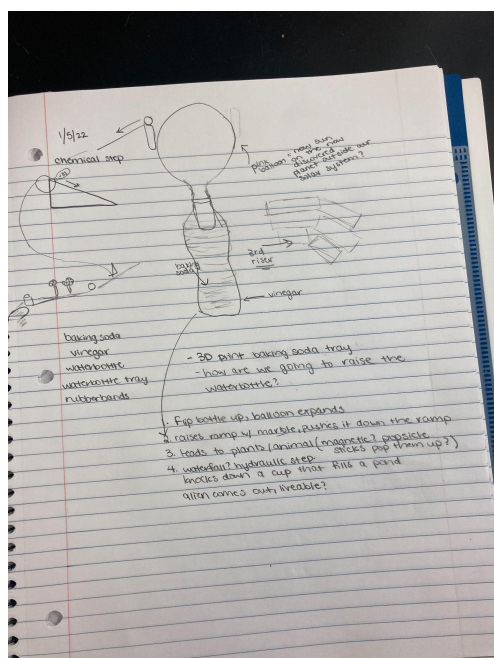 1/5/22
chemical step
pink balloon = new sun
on the new
discovered
planet outside our
solar system?
baking
soda
3rd
riser
vinegar
baking soda
vinegar
waterbottle
waterbottle tray
rubberbands
- 3D print baking soda tray
- how are we going to raise the
waterbottle?
1. flip bottle up, balloon expands
2. raises ramp w/ marble, pushes it down the ramp
3. leads to plants/animal (magnetic? popsicle
sticks pop them up?)
4. waterfall? hydraulic step
knocks down a cup that fills a pond
alien comes out, liveable?